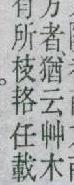 方者猶云艸木
有所枝挌任載